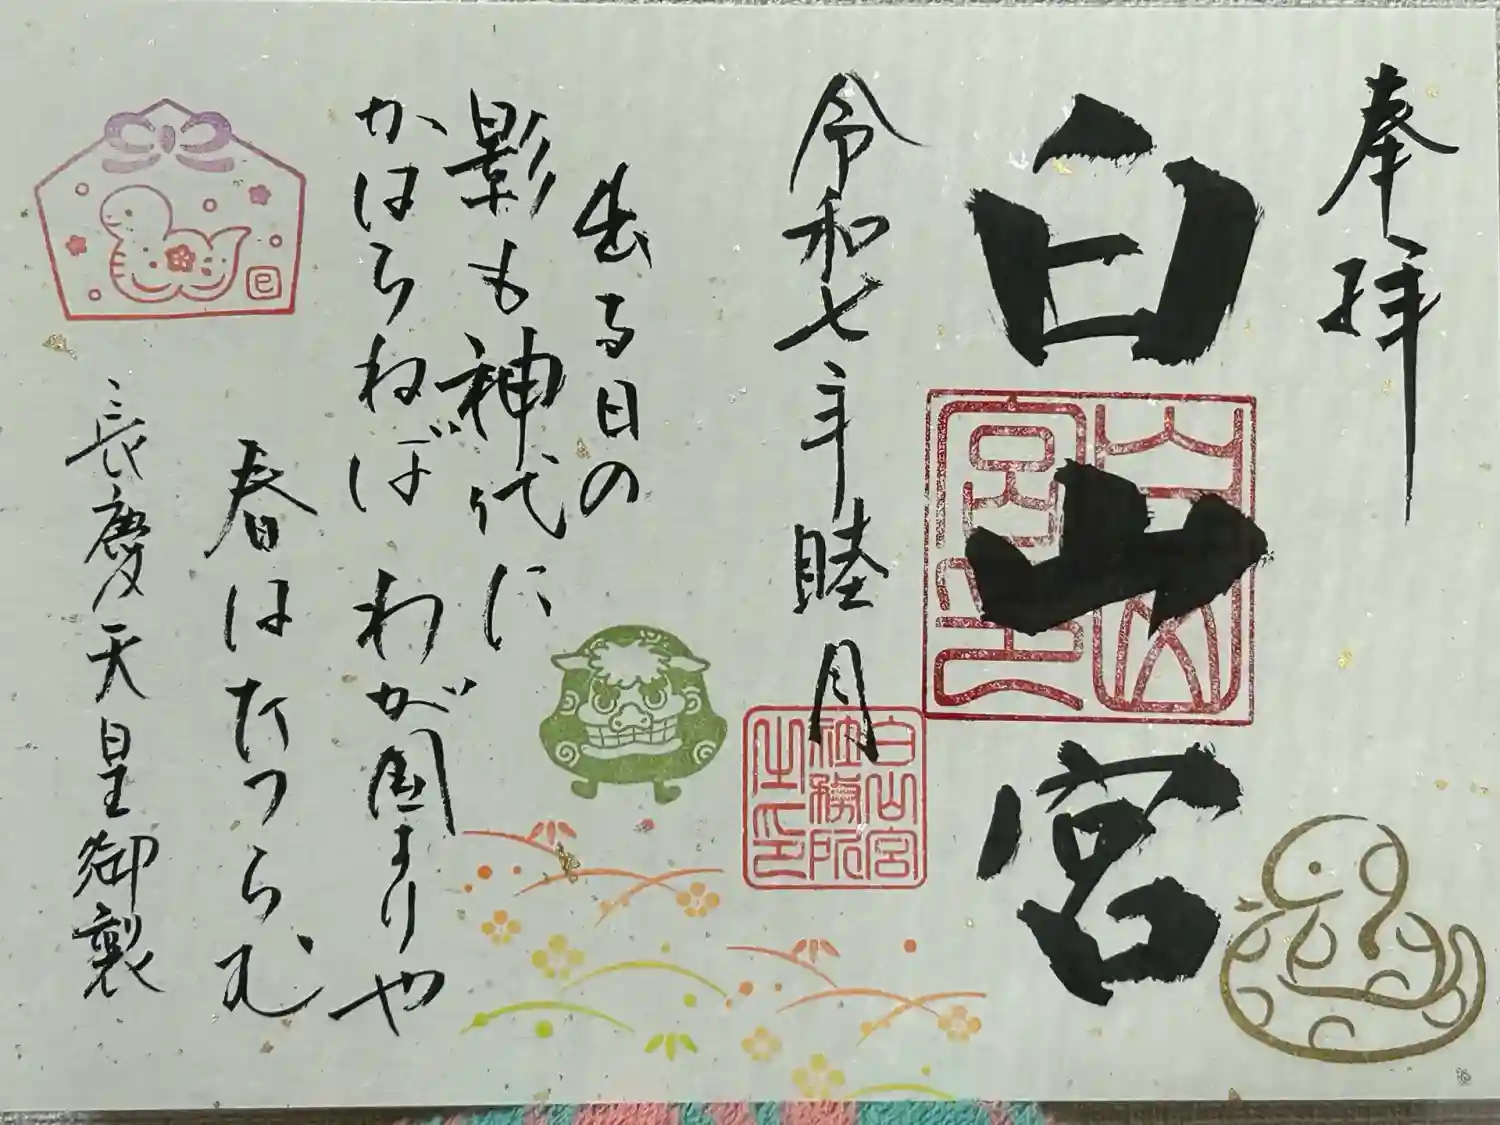 奉拝
白山宮
山宮
白山宮
社務所
之印
令和七年睦月
出る日の
影も神代に
かはらねば わが国よりや
春はたつらむ
長慶天皇御製
巳